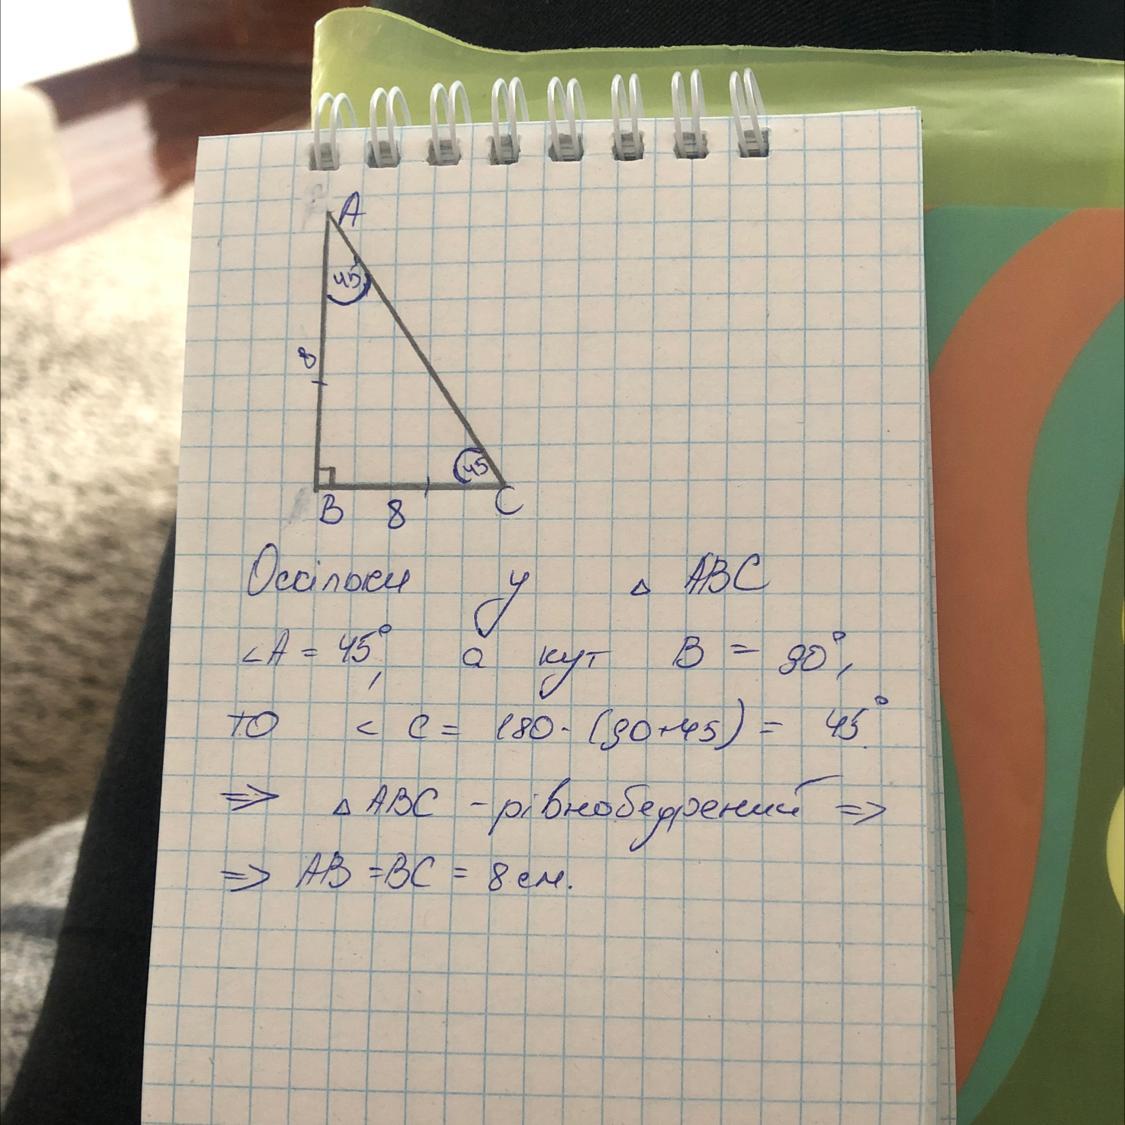 A
45°
8
45
B 8 C
Оскільки у △ ABC
∠A = 45°, а кут B = 90°,
то ∠ C = 180 - (90+45) = 45°.
⇒ △ ABC - рівнобедрений ⇒
⇒ AB = BC = 8 см.